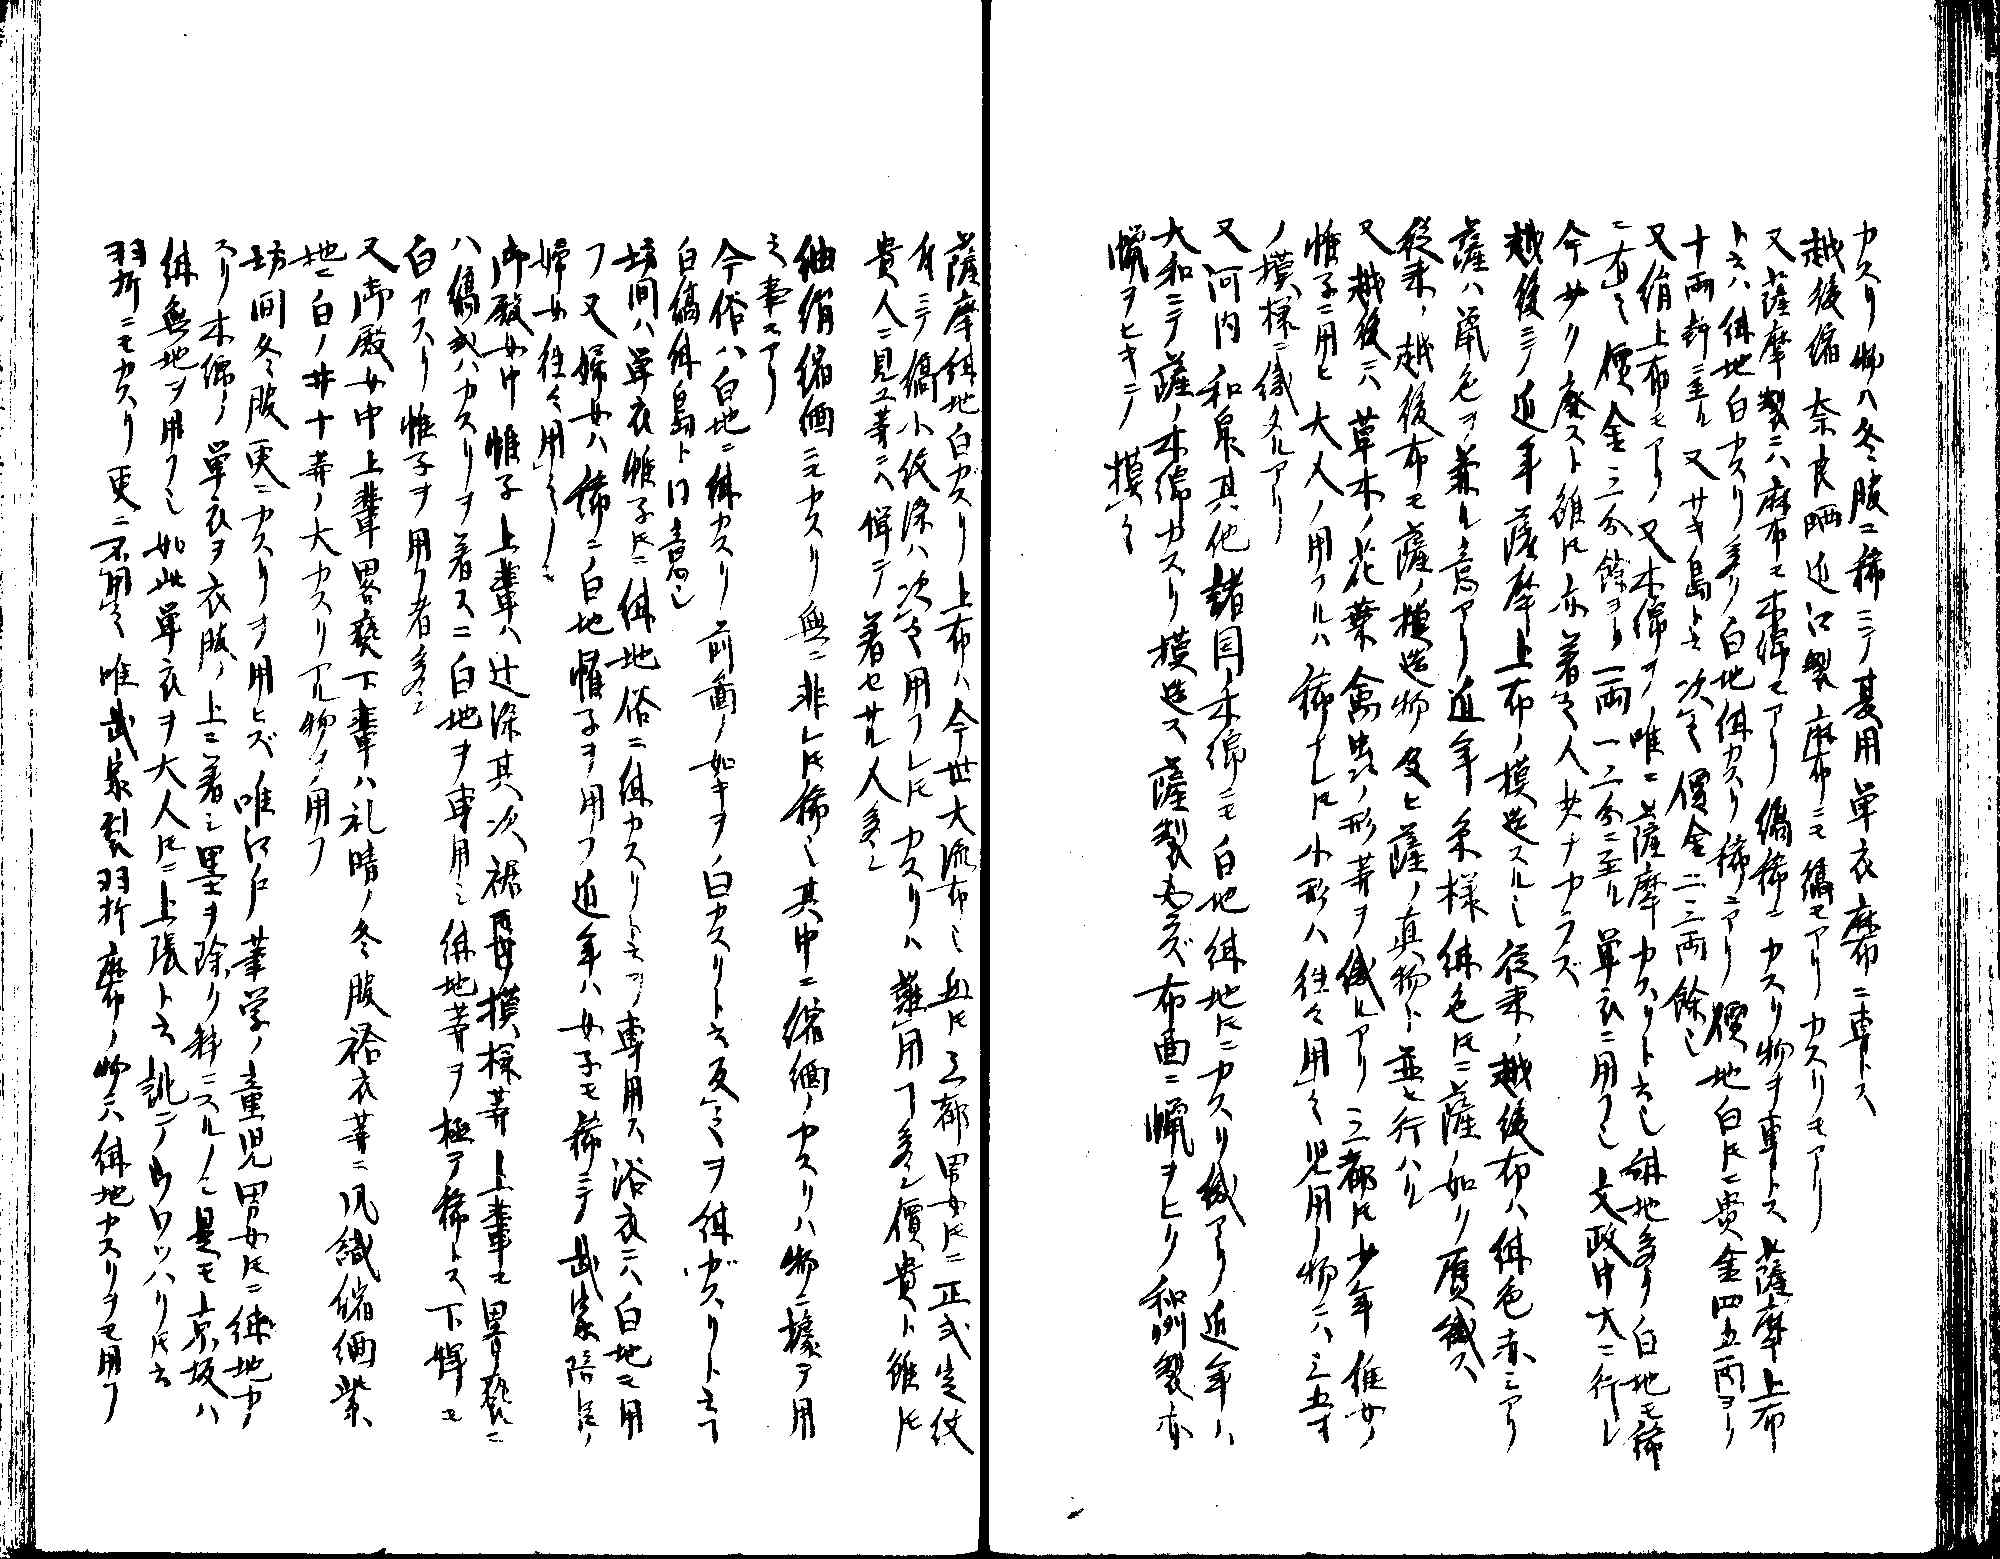 カスリ物ハ冬服ニ稀ニテ夏用単衣麻布ニ専トス
越後縮奈良晒近江製麻布ニモ縞モアリカスリモアリ
又薩摩製ニハ麻布モ木綿モアリ縞稀ニカスリ物ヲ専トス薩摩上布
ト云ハ紺地白カスリ多ク白地紺カスリ稀ニアリ價地白トモニ貴金四五両ヨリ
十両許ニ至ル又サキ島ト云次之價金二三両餘也
又絹上布モアリ又木綿ヲノ唯ニ薩摩カスリト云也紺地多ク白地モ稀
ニ有之價金三分餘ヨリ一両一二分ニ至ル単衣ニ用フ也文政中大ニ行レ
今少ク廃スト雖トモ亦着之人少ナカラズ
越後ニテ近年薩摩上布ノ模造スル也従来ノ越後布ハ紺色赤ミアリ
薩ハ黒色ヲ兼ル意アリ近年糸様紺色トモニ薩ノ如ク贋織ス
従来ノ越後布モ薩ノ模造物及ヒ薩ノ真物ト並ヒ行ハル
又越後ニハ草木ノ花葉禽虫ノ形等ヲ織ルアリ三都トモ少年雅女ノ
帷子ニ用ヒ大人ノ用フルハ稀ナレトモ小形ハ往々用之児用ノ物ニハ三五寸
ノ模様ニ織タルアリ
又河内和泉其他諸国ノ木綿ニモ白地紺地トモニカスリ織アリ近年ハ
大和ニテ薩ノ木綿カスリ模造ス薩製ハ布面ニ蝋ヲヒク和州製亦
蝋ヲヒキテ摸之
薩摩紺地白カスリ上布ハ今世大流布也三都男女トモニ正式定紋
付ニテ縞小紋染ハ次之用フレトモカスリハ難用コト多シ價貴ト雖トモ
貴人ニ見ユ等ニハ憚テ着セサル人多シ
紬絹縮緬ニモカスリ無ニ非レトモ稀也其中ニ縮緬ノカスリハ物ニ據テ用
之事モアリ
今俗ハ白地ニ紺カスリ前図ノ如キヲ白カスリト云反之ヲ紺ガスリト云コ
白縞紺島ト同意也
坊間ハ単衣帷子トモニ紺地俗ニ紺カスリト云ヲ専用ス浴衣ニハ白地モ用
フ又婦女ハ稀ニ白地帷子ヲ用フ近年ハ女子モ稀ニテ武家陪臣ノ
婦女往々用之ノミ
御殿女中帷子上輩ハ辻染其次裾模様等上輩モ畧褻ニ
ハ縞或ハカスリヲ着スニ白地ヲ専用シ紺地等ヲ極テ稀トス下婢モ
白カスリ帷子ヲ用フ者多シ
又御殿女中上輩畧褻下輩ハ礼晴ノ冬服袷衣等ニ风織縮緬紫
地ニ白ノ井十等ノ大カスリアル物ヲ用フ
坊間冬服更ニカスリヲ用ヒズ唯江戸筆学ノ童児男女トモニ紺地カ
スリ木綿ノ単衣ヲ衣服ノ上ニ着シ墨ヲ除ク料ニスルノミ是モ京坂ハ
紺無地ヲ用フ也如此単衣ヲ大人トモニ上張ト云訛テウワツハリトモ云
羽折ニモカスリ更ニ不用之唯武家裂羽折麻布ノ物ニハ紺地カスリヲモ用フ